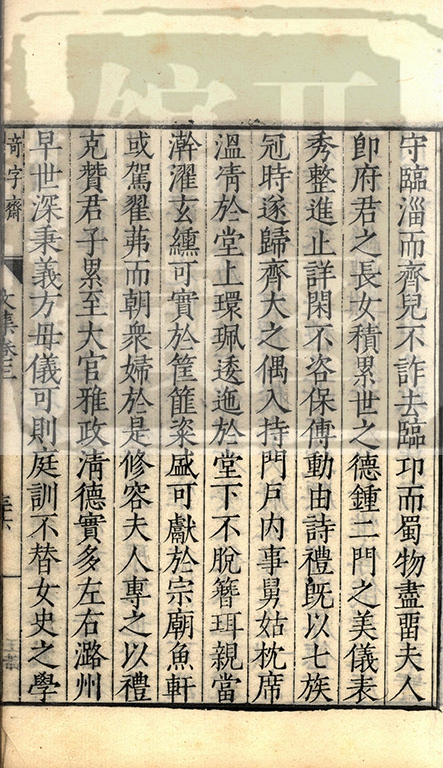 守臨淄而齊兒不詐去臨邛而蜀物盡畱夫人
卽府君之長女積累世之德鍾二門之美儀表
秀整進止詳閑不咨保傅動由詩禮旣以七族
冠時遂歸齊大之偶入持門戶內事舅姑枕席
溫凊於堂上環珮逶迤於堂下不脫簪珥親當
澣濯玄纁可實於筐篚粢盛可獻於宗廟魚軒
或駕翟茀而朝衆婦於是修容夫人專之以禮
克贊君子累至大官雅政淸德實多左右潞州
早世深秉義方母儀可則庭訓不替女史之學
奇字齋
文集卷三